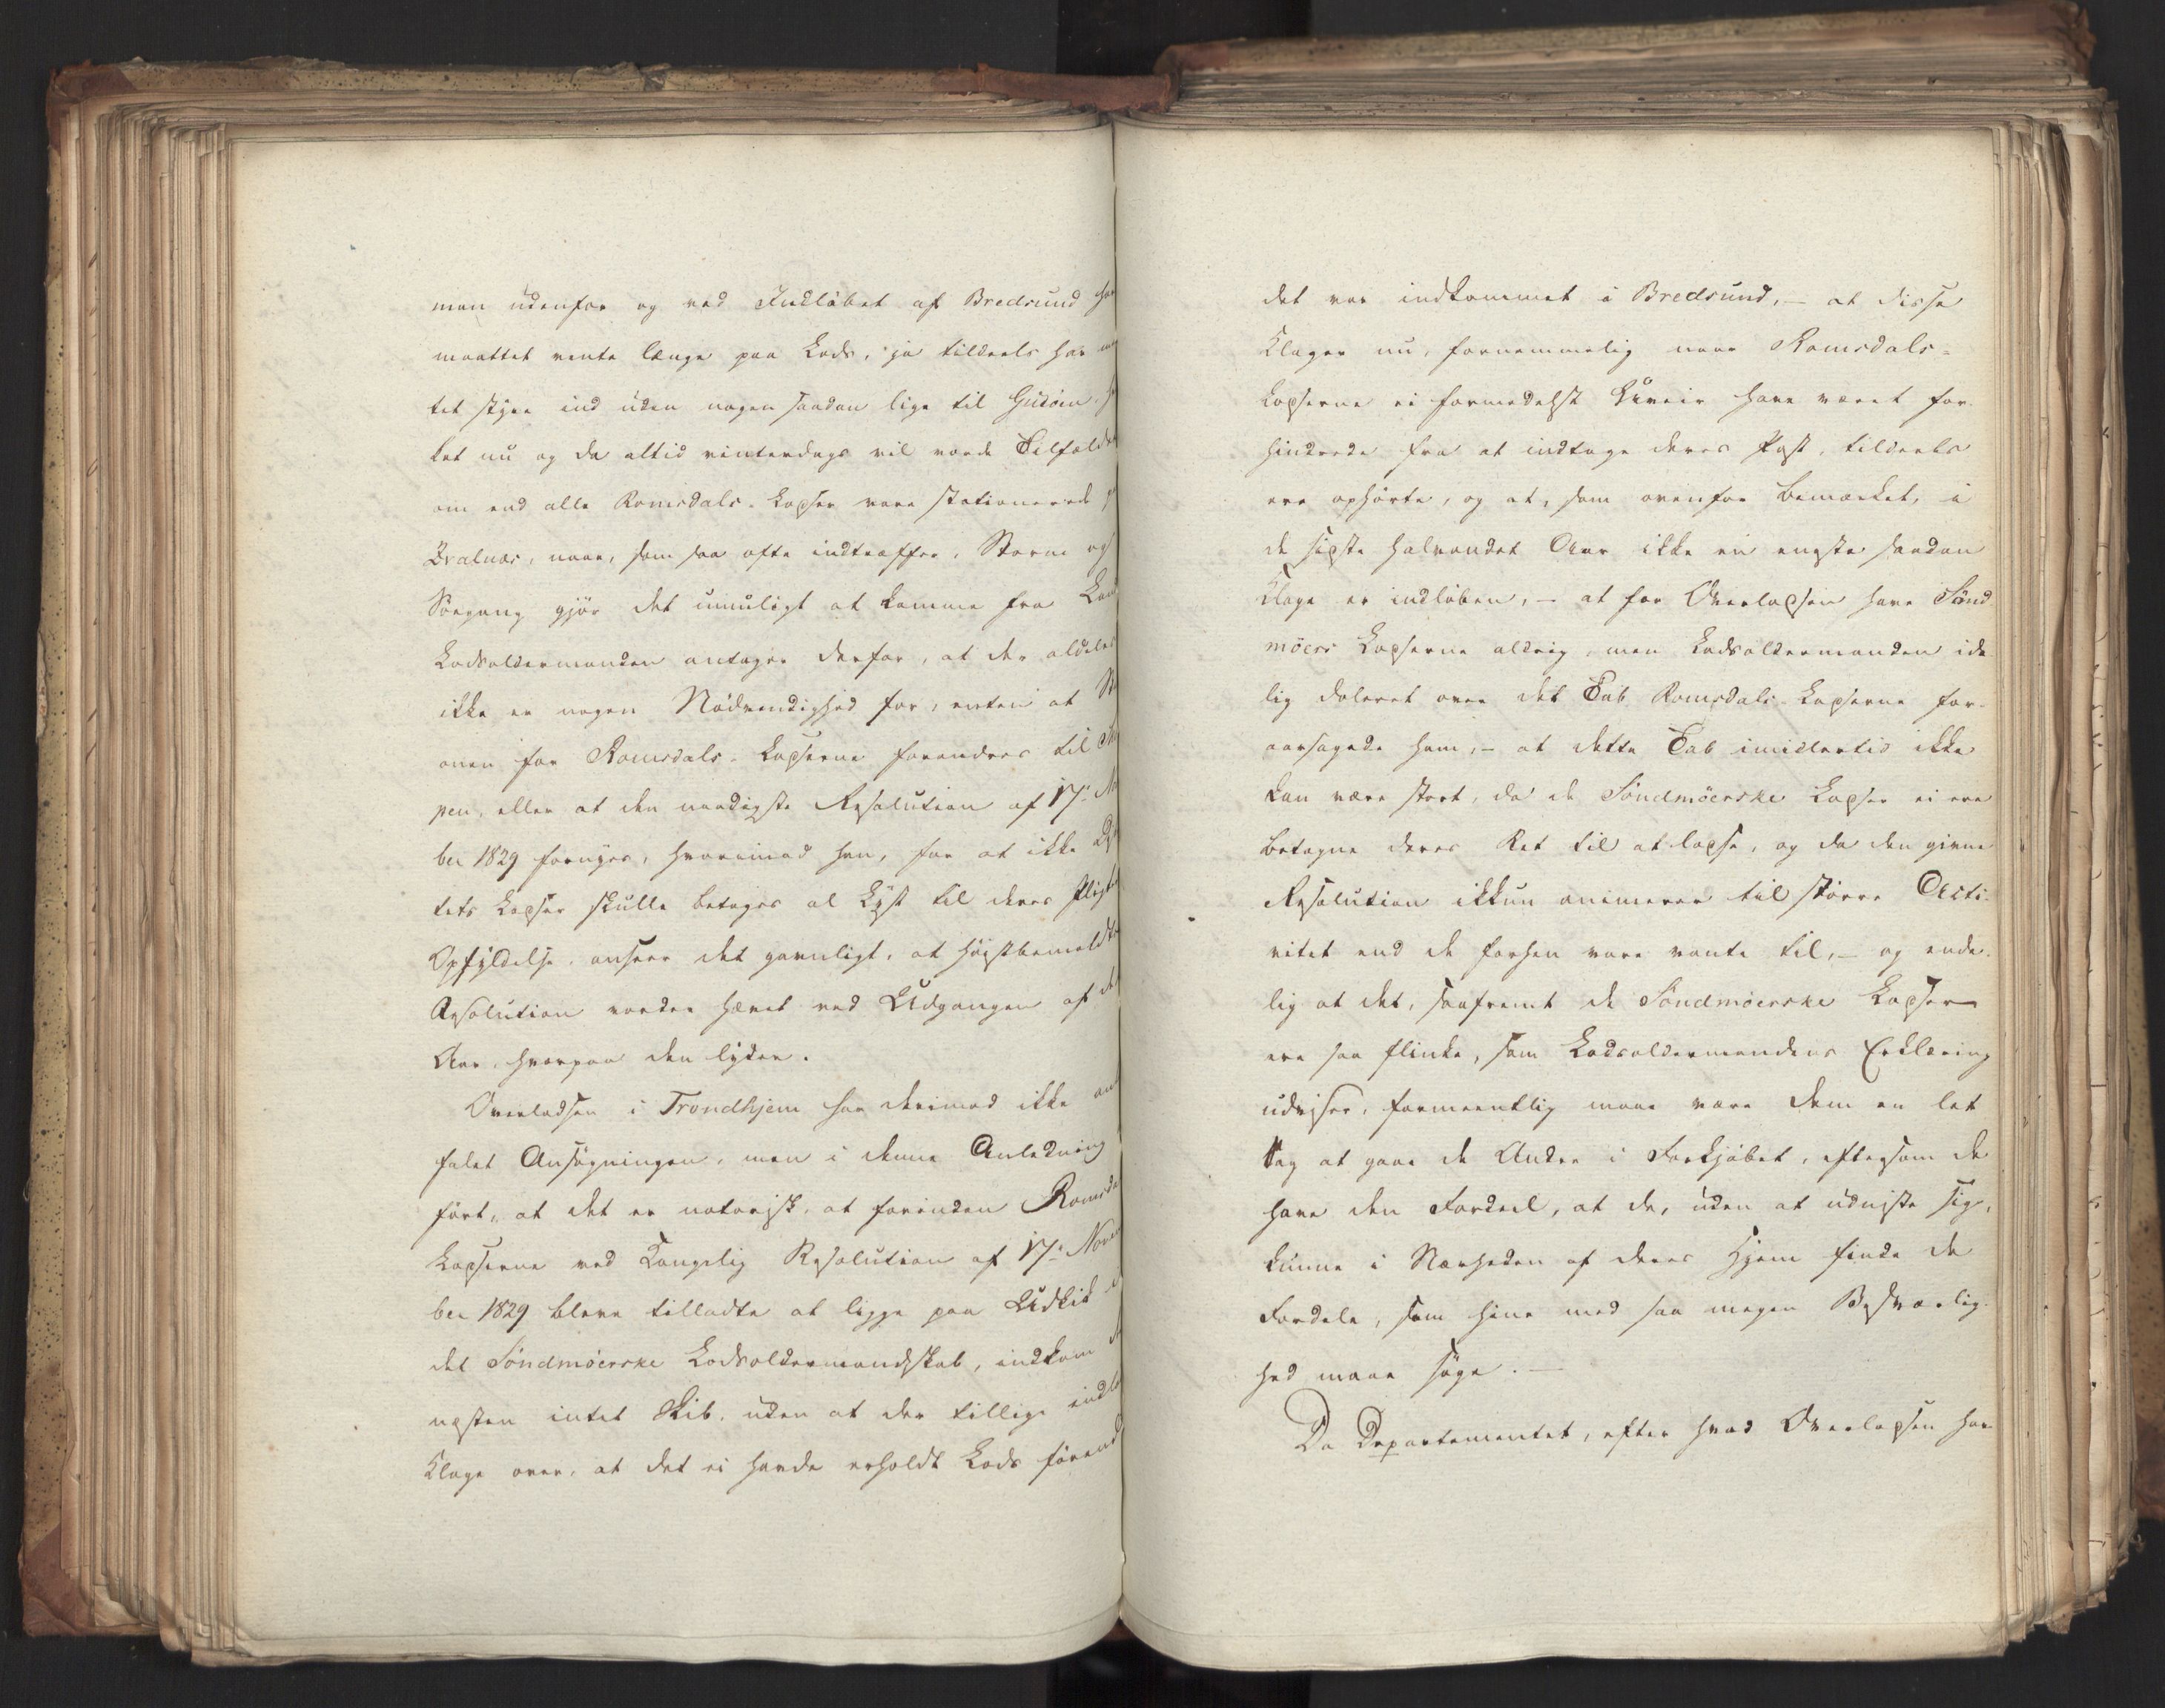 men udenfor og ved Indløbet af Bredsund har
maattet vente længe paa Lods, ja tildeels har
tet styre ind uden nogen saadan lige til Gudöen,
ket nu og da altid vinterdags vil vorde Tilfældet
om end alle Romsdals-Lodser vare stationerede
Qvalnæs, naar, som saa ofte indtræffer, Storm og
Söegang gjör det umuligt at komme fra Land
Lodsoldermanden antager derfor, at der aldeles
ikke er nogen Nödvendighed for, enten at
onen for Romsdals-Lodserne forandres til
pen, eller at den naadigste Resolution af 17de
ber 1829 fornyes, hvorimod han, for at ikke
tets Lodser skulle betages al Lyst til deres Pligters
Opfyldelse, anseer det gavnligt, at höistbemeldte
Resolution vorder hævet ved Udgangen af det
Aar, hvorpaa den lyder.
Overlodsen i Trondhjem har derimod ikke
falet Ansögningen, men i denne Anledning
fört, at det er notorisk, at forinden Romsdals
Lodserne ved Kongelig Resolution af 17de Novem
ber 1829 bleve tilladte at ligge paa Udkik i
det Söndmöerske Lodsoldermandskab, indkom
næsten intet Skib, uden at der tillige indløb
Klage over, at det ei havde erholdt Lods förend
det var indkommet i Bredsund, – at disse
Klager nu, fornemmelig naar Romsdals-
Lodserne ei formedelst Uveir have været for-
hindrede fra at indtage deres Post, tildeels
ere ophörte, og at, som ovenfor bemærket, i
de sidste halvandet Aar ikke en eneste saadan
Klage er indløben, – at for Overlodsen have Sönd
möers Lodserne aldrig, men Lodsoldermanden ide
lig doleret over det Tab Romsdals-Lodserne for-
aarsagede ham, – at dette Tab imidlertid ikke
kan være stort, da de Söndmöerske Lodser ei ere
betagne deres Ret til at lodse, og da den givne
Resolution ikkun animerer til större Acti-
vitet end de forhen vare vante til, – og ende-
lig at det, saafremt de Söndmöerske Lodser
ere saa flinke, som Lodsoldermandens Erklæring
udviser, formeentlig maae være dem en let
Sag at gaae de Andre i Forkjöbet, eftersom de
have den Fordeel, at de, uden at udviste sig,
kunne i Nærheden af deres Hjem finde de
Fordele, som hine med saa megen Besværlig-
hed maae söge. –
Da Departementet, efter hvad Overlodsen har